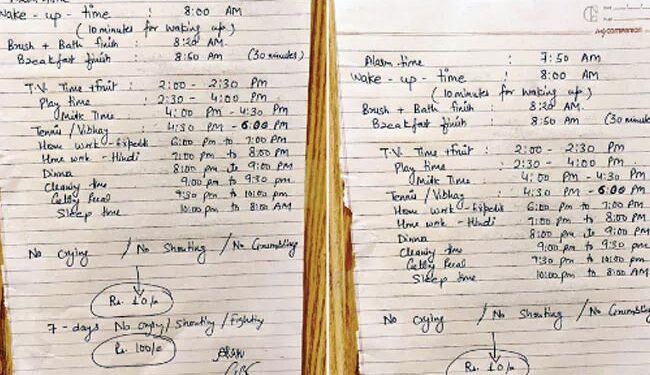 Alarm time
Wake - up - time : 8:00 AM
(10 minutes for waking up)
Brush + Bath finish : 8:20 AM
Breakfast finish : 8:50 AM (30 minutes)
T.V. Time +fruit : 2:00 - 2:30 Pm
Play time : 2:30 - 4:00 Pm
Milk Time : 4:00 PM - 4:30 Pm
Tennis / Vibhay : 4:30 PM - 6:00 Pm
Home work - : 6:00 pm to 7:00 Pm
Home work - Hindi : 7:00 pm to 8:00 PM
Dinna : 8:00 pm to 9:00 PM
Cleaning time 9:00 pm to 9:30 pm
9:30 pm to 10:00 pm
Sleep time 10:00 pm to 8:00 AM
No Crying / No Shouting / No Grumbling
Rs. 10/-
7 - days No Crying / Shouting / Fighting
Rs. 100/-
Alarm time : 7:50 AM
Wake - up - time : 8:00 AM
(10 minutes for waking up)
Brush + Bath finish : 8:20 AM
Breakfast finish : 8:50 AM (30 minute
T.V. Time +fruit : 2:00 - 2:30 Pm
Play time : 2:30 - 4:00 Pm
Milk Time : 4:00 PM - 4:30 Pm
Tennis / Vibhay : 4:30 PM - 6:00 Pm
Home work - : 6:00 pm to 7:00 Pm
Home work - Hindi : 7:00 pm to 8:00 PM
Dinna : 8:00 pm to 9:00 PM
Cleaning time 9:00 pm to 9:30 pm
9:30 pm to 10:00 pm
Sleep time 10:00 pm to 8:00 AM
No Crying / No Shouting / No Grumbling
Rs. 10/-